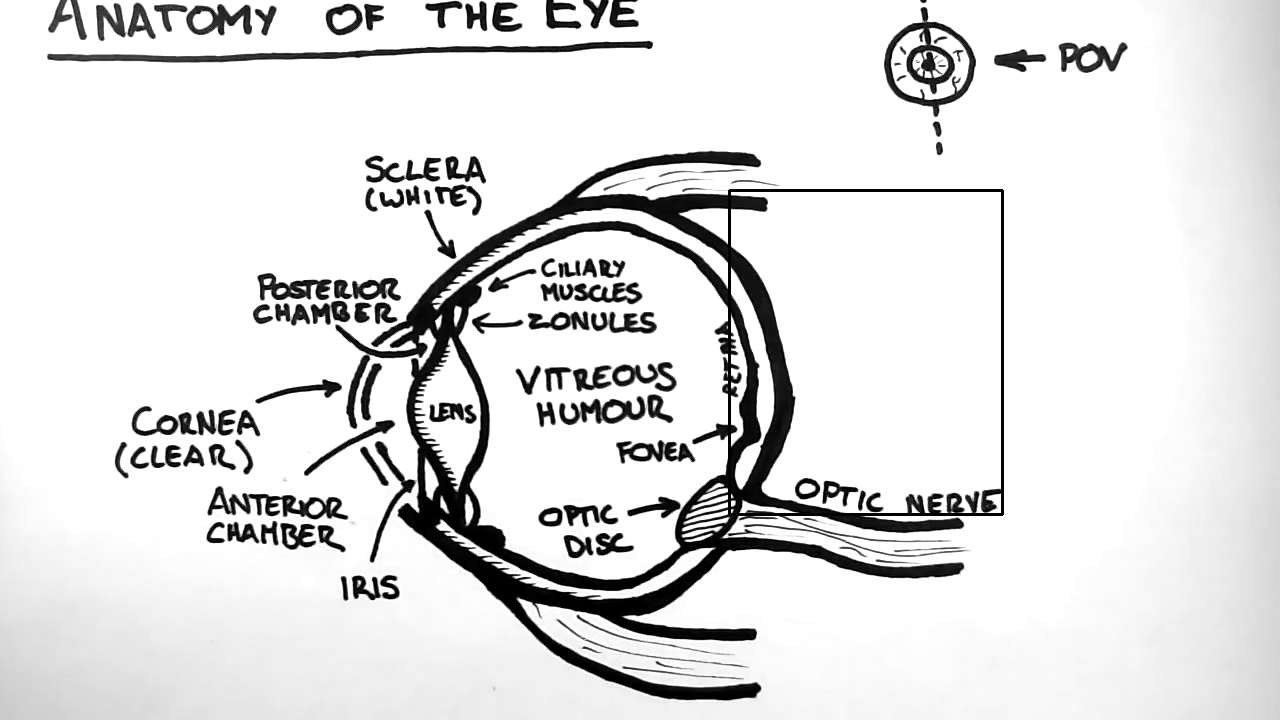 ANATOMY OF THE EYE
POV
SCLERA
(WHITE)
POSTERIOR
CHAMBER
CILIARY
MUSCLES
ZONULES
RETINA
VITREOUS
HUMOUR
LENS
CORNEA
(CLEAR)
FOVEA
ANTERIOR
CHAMBER
OPTIC
DISC
OPTIC NERVE
IRIS